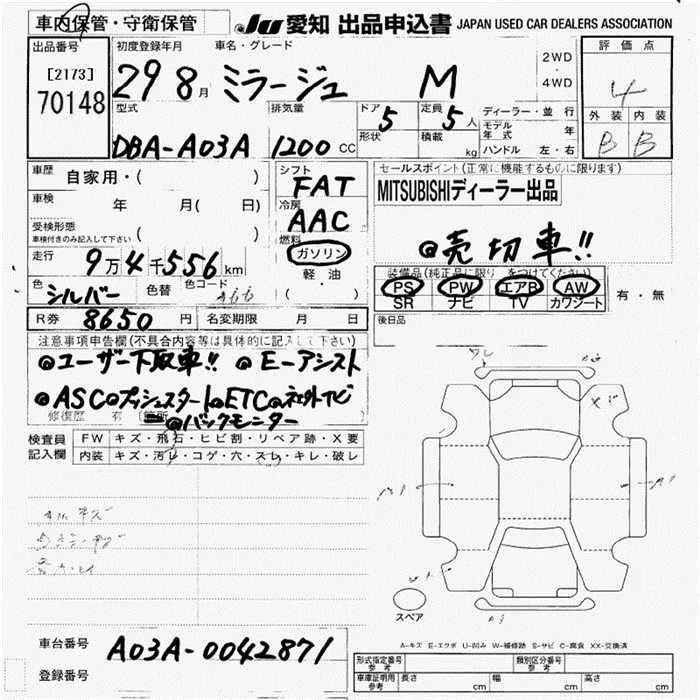 車内保管・守衛保管
JU 愛知 出品申込書 JAPAN USED CAR DEALERS ASSOCIATION
出品番号
[2173]
70148
初度登録年月 車名・グレード
29 8月 ミラージュ M
2WD
・
4WD
評価点
4
外装 内装
B B
型式 排気量
DBA-A03A 1200 CC
ドア 5 定員 5人
形状 積載 kg
ディーラー・並行
モデル年式 年
ハンドル 左・右
車歴 自家用・( )
車検 年 月( 日)
受検形態
車検付きのみ記入して下さい ( )
走行 9万4千556km
色 シルバー 色替 色コード
R券 8650円 名変期限 月 日
シフト
FAT
冷房
AAC
燃料
ガソリン
軽・油
( )
セールスポイント(正常に機能するものに限ります)
MITSUBISHIディーラー出品
◎売切車!!
装備品(純正品に限り をつけてください)
PS PW エアB AW
SR ナビ TV カワシート
有・無
後日品
注意事項申告欄(不具合内容等は具体的に記入して下さい)
◎ユーザー下取車!! ◎E-アシスト
◎ASC◎プッシュスタート◎ETC◎社外ナビ
◎バックモニター
修復歴 有 (箇所
検査員記入欄
FW キズ・飛石・ヒビ割・リペア跡・X要
内装 キズ・汚レ・コゲ・穴・スレ・キレ・破レ
スペア
A-キズ E-エクボ U-凹み W-補修跡 S-サビ C-腐食 XX-交換済
車台番号 A03A-0042871
登録番号
形式指定番号 参考 類別区分番号 参考
車庫証明用 参考 長さ cm 幅 cm 高さ cm